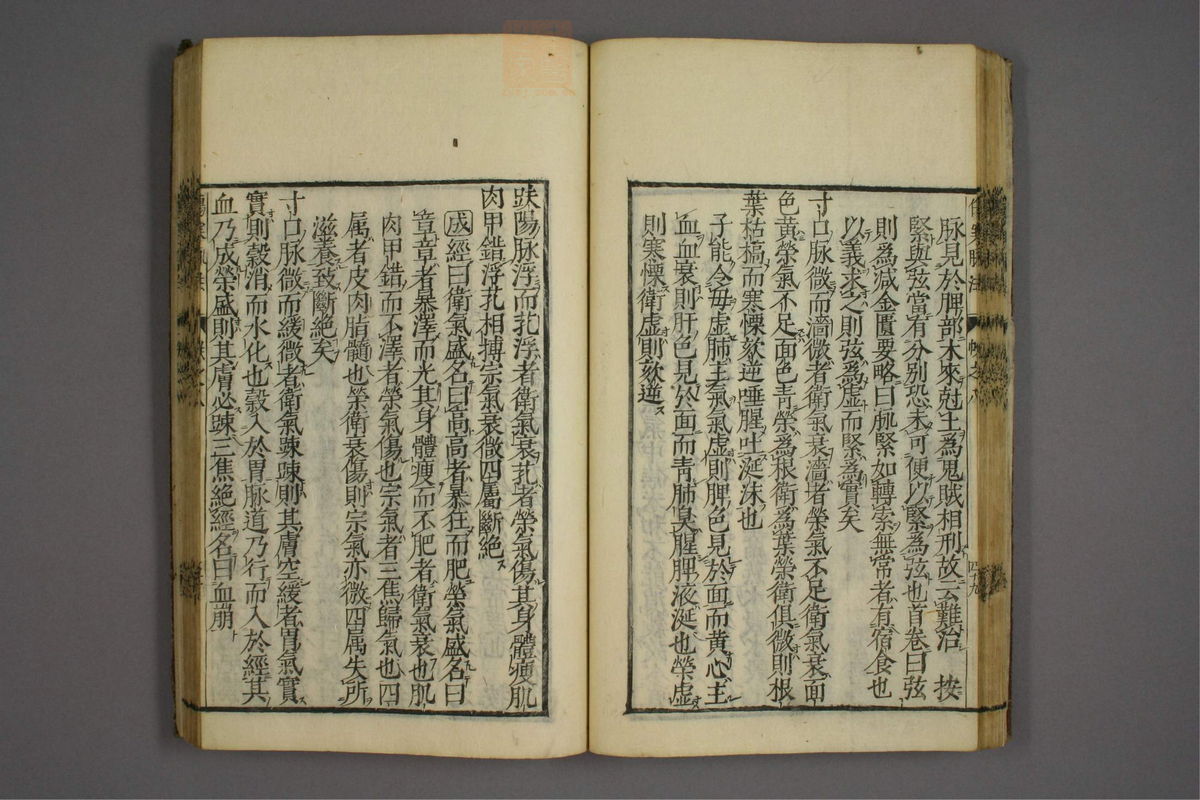 脉見於脾部木來尅土爲鬼賊相刑故云難治 按
緊與弦當有分別恐未可便以緊為弦也首卷曰弦
則為減金匱要略曰脉緊如轉索無常者有宿食也
以義求之則弦爲虚而緊為實矣
寸口脉微而濇微者衛氣衰濇者榮氣不足衛氣衰面
色黄榮氣不足面色青榮爲根衛爲葉榮衛俱微則根
葉枯槁而寒慄欬逆唾腥吐涎沫也
子能令母虚肺主氣氣虚則脾色見於面而黄心主
血血衰則肝色見於面而青肺臭腥脾液涎也榮虚
則寒慄衛虚則欬逆
趺陽脉浮而芤浮者衛氣衰芤者榮氣傷其身體瘦肌
肉甲錯浮芤相摶宗氣衰微四屬斷絶
成經曰衛氣盛名曰高高者暴狂而肥榮氣盛名曰
章章者暴澤而光其身體瘦而不肥者衛氣衰也肌
肉甲錯而不澤者榮氣傷也宗氣者三焦歸氣也四
属者皮肉脂髓也榮衛衰傷則宗氣亦微四属失所
滋養致斷絶矣
寸口脉微而緩微者衛氣踈踈則其膚空緩者胃氣實
實則穀消而水化也穀入於胃脉道乃行而入於經其
血乃成榮盛則其膚必踈三焦絶經名曰血崩